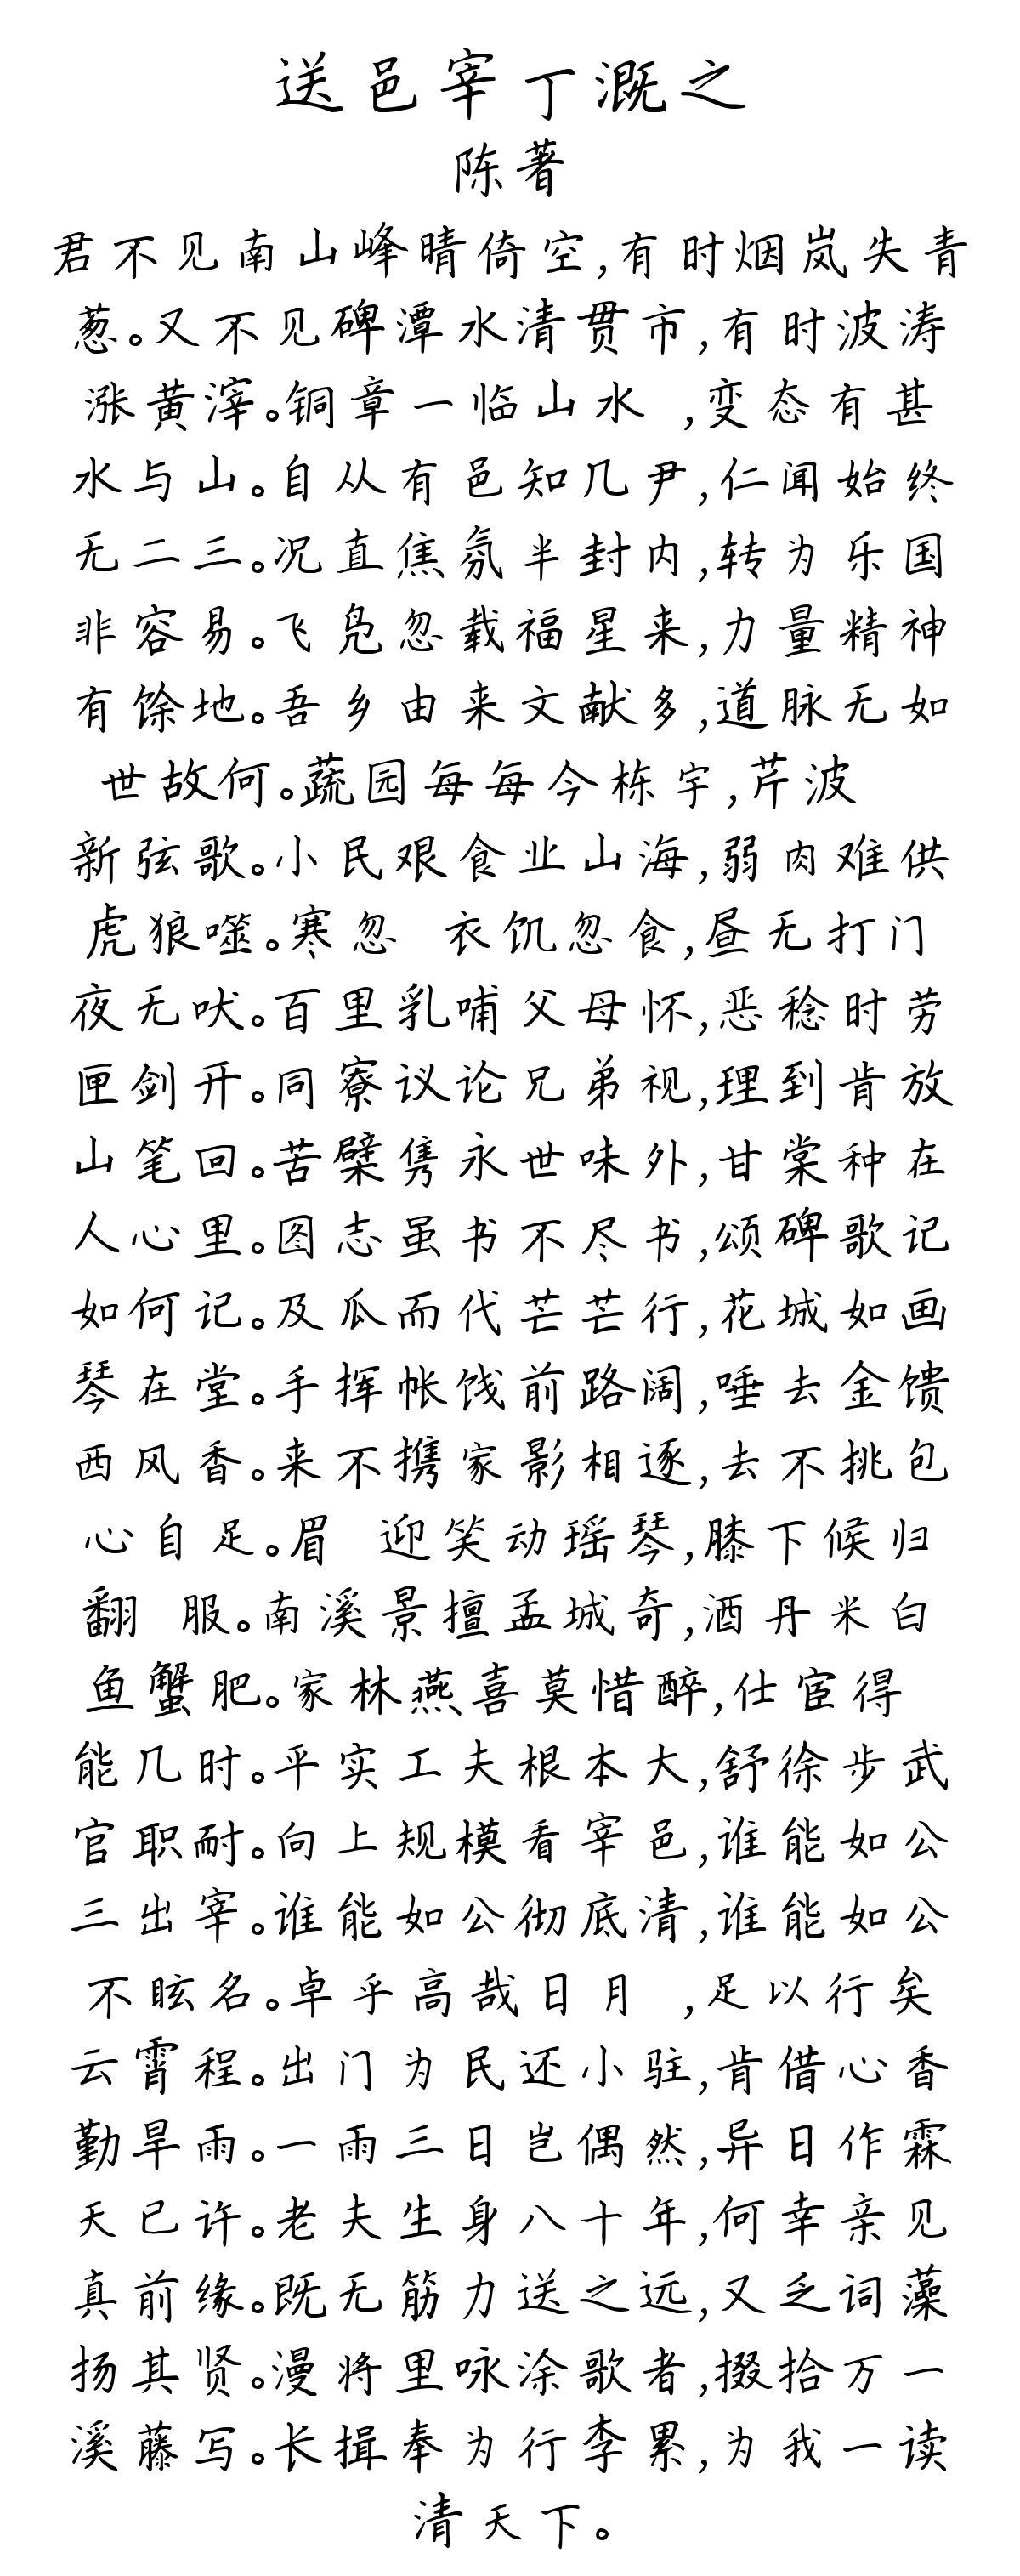 送邑宰丁溉之
陈著
君不见南山峰晴倚空,有时烟岚失青
葱。又不见碑潭水清贯市,有时波涛
涨黄滓。铜章一临山水 ,变态有甚
水与山。自从有邑知几尹,仁闻始终
无二三。况直焦氛半封内,转为乐国
非容易。飞凫忽载福星来,力量精神
有馀地。吾乡由来文献多,道脉无如
世故何。蔬园每每今栋宇,芹波
新弦歌。小民艰食业山海,弱肉难供
虎狼噬。寒忽 衣饥忽食,昼无打门
夜无吠。百里乳哺父母怀,恶稔时劳
匣剑开。同寮议论兄弟视,理到肯放
山笔回。苦檗隽永世味外,甘棠种在
人心里。图志虽书不尽书,颂碑歌记
如何记。及瓜而代芒芒行,花城如画
琴在堂。手挥帐饯前路阔,唾去金馈
西风香。来不携家影相逐,去不挑包
心自足。眉 迎笑动瑶琴,膝下候归
翻 服。南溪景擅孟城奇,酒丹米白
鱼蟹肥。家林燕喜莫惜醉,仕宦得
能几时。平实工夫根本大,舒徐步武
官职耐。向上规模看宰邑,谁能如公
三出宰。谁能如公彻底清,谁能如公
不眩名。卓乎高哉日月 ,足以行矣
云霄程。出门为民还小驻,肯借心香
勤旱雨。一雨三日岂偶然,异日作霖
天已许。老夫生身八十年,何幸亲见
真前缘。既无筋力送之远,又乏词藻
扬其贤。漫将里咏涂歌者,掇拾万一
溪藤写。长揖奉为行李累,为我一读
清天下。